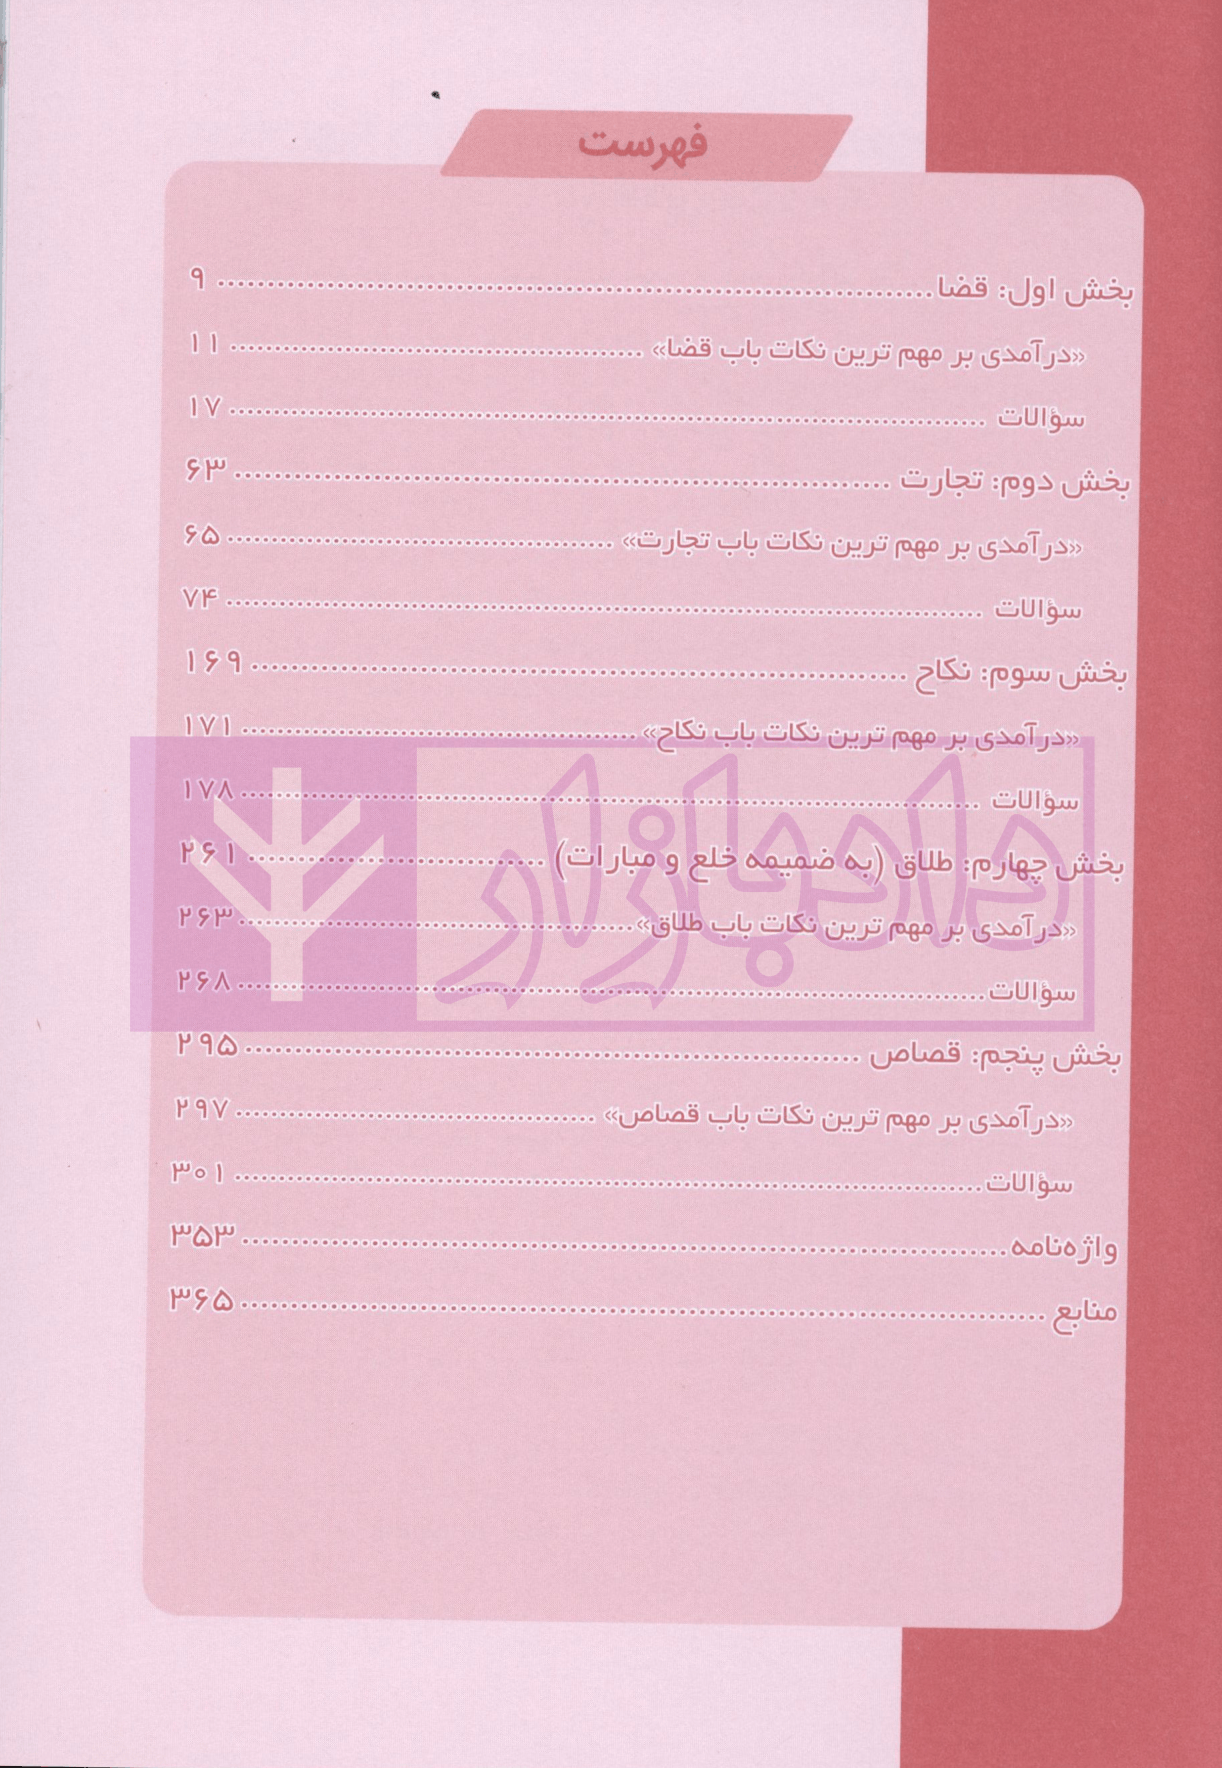 فهرست
بخش اول: قضا ........ ۹
«درآمدی بر مهم ترین نکات باب قضا» ........ ۱۱
سؤالات ........ ۱۷
بخش دوم: تجارت ........ ۶۳
«درآمدی بر مهم ترین نکات باب تجارت» ........ ۶۵
سؤالات ........ ۷۴
بخش سوم: نکاح ........ ۱۶۹
«درآمدی بر مهم ترین نکات باب نکاح» ........ ۱۷۱
سؤالات ........ ۱۷۸
بخش چهارم: طلاق (به ضمیمه خلع و مبارات) ........ ۲۶۱
«درآمدی بر مهم ترین نکات باب طلاق» ........ ۲۶۳
سؤالات ........ ۲۶۸
دادبازار
بخش پنجم: قصاص ........ ۲۹۵
«درآمدی بر مهم ترین نکات باب قصاص» ........ ۲۹۷
سؤالات ........ ۳۰۱
واژه‌نامه ........ ۳۵۳
منابع ........ ۳۶۵